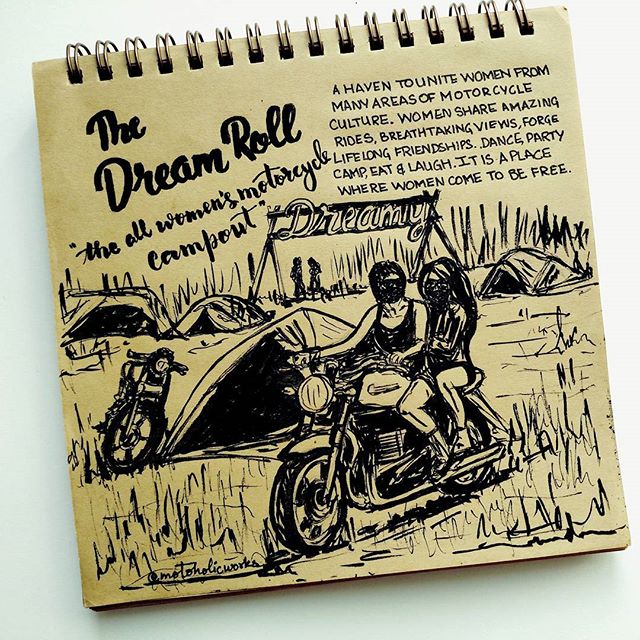 The
Dream Roll
"the all women's motorcycle
campout"
A HAVEN TO UNITE WOMEN FROM
MANY AREAS OF MOTORCYCLE
CULTURE. WOMEN SHARE AMAZING
RIDES, BREATHTAKING VIEWS, FORGE
LIFELONG FRIENDSHIPS. DANCE, PARTY
CAMP, EAT & LAUGH. IT IS A PLACE
WHERE WOMEN COME TO BE FREE.
Dreamy
@motoholicworks